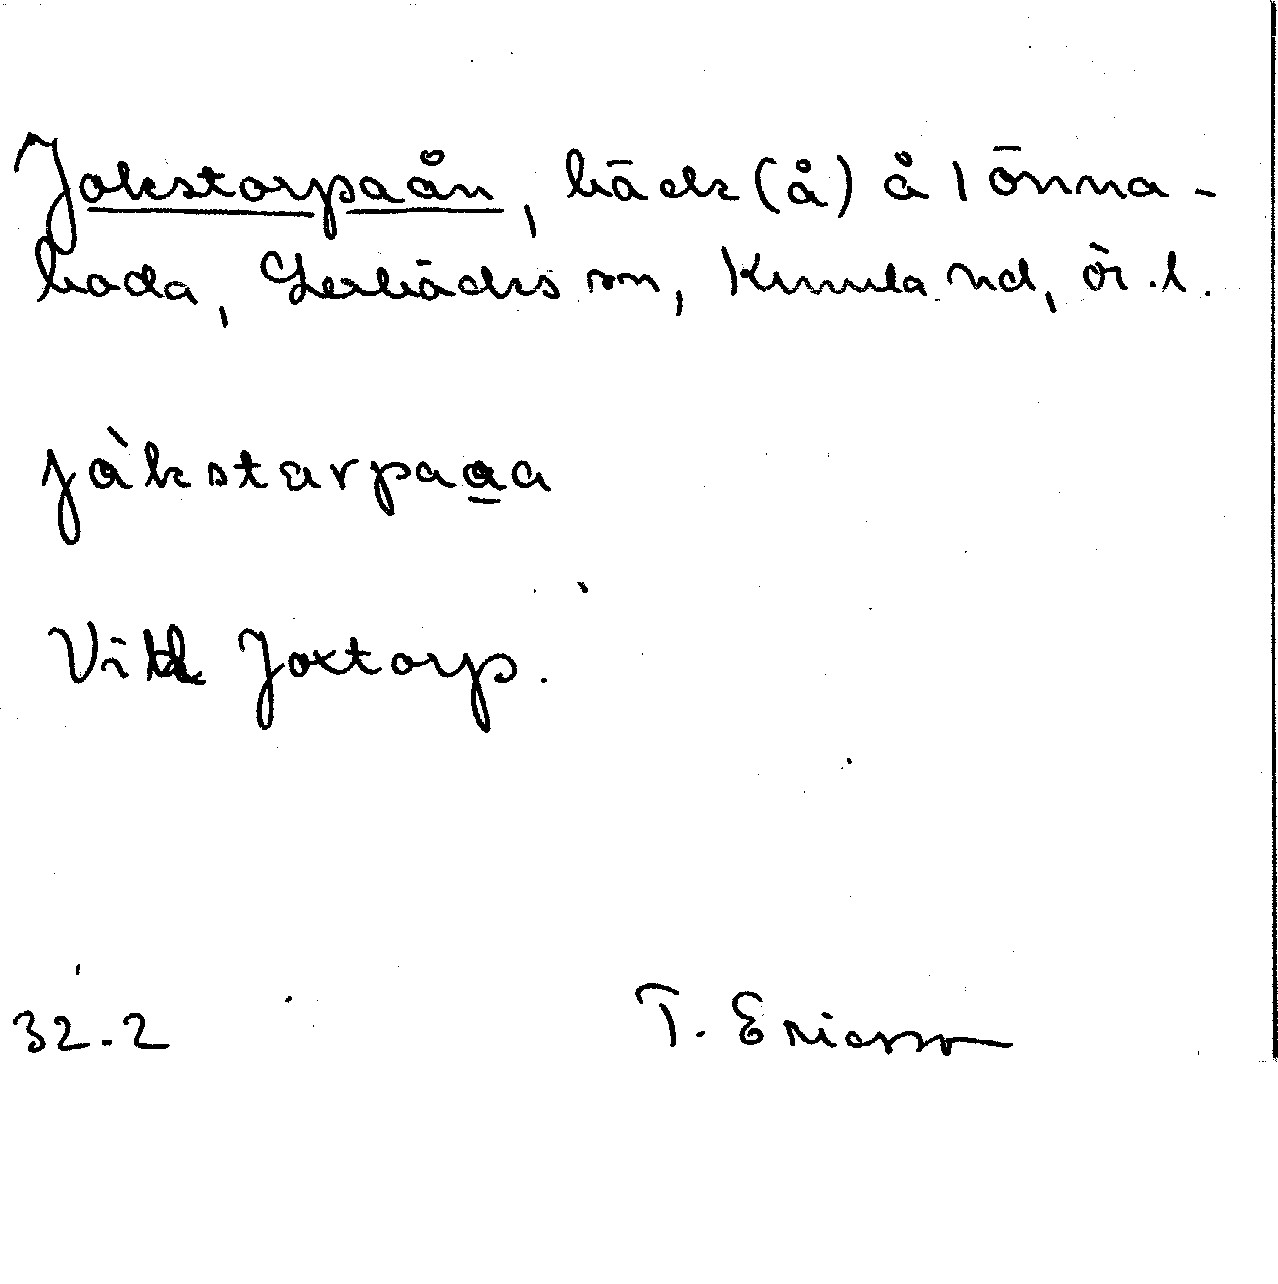 Jokstorpaån, bäck (å) å 1 önna-
boda, Lerbäcks sn, Kumla hd, ör.l.
jòkstarpaaa
Vid Joxtorp.
32.2 T. Ericsson